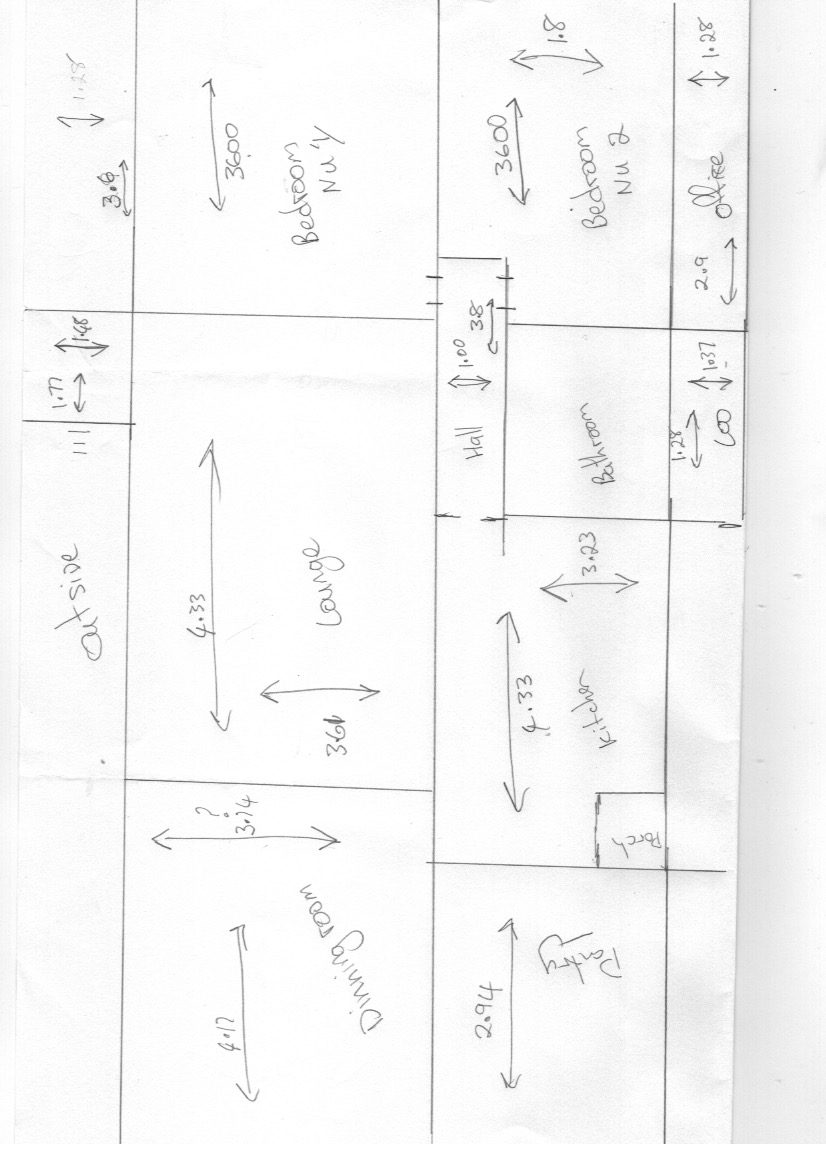 1.28
3.6
3600
Bedroom
NU 1
1.8
3600
Bedroom
NU 2
1.28
Office
2.9
1.48
1.77
111
1.00
38
Hall
Bathroom
1.37
1.28
LOO
outside
4.33
Lounge
3.61
3.23
4.33
Kitchen
Porch
?
3.74
Dinning room
4.17
2.94
Pantry